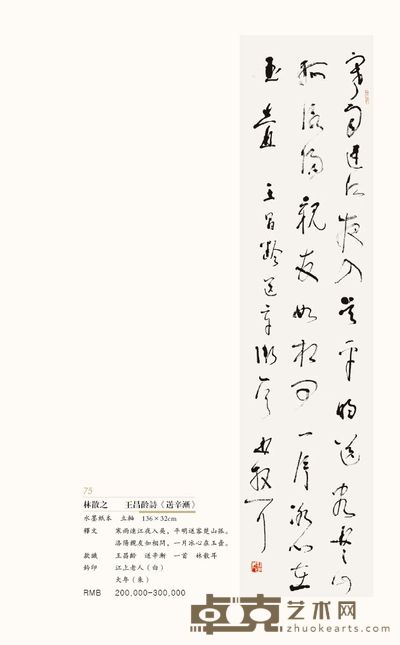 寒雨連江夜入吳平明送客楚山
孤洛陽親友如相問一片冰心在
玉壺 王昌齡送辛漸一首 林散耳
75
林散之 王昌齡詩《送辛漸》
水墨紙本 立軸 136×32cm
釋文 寒雨連江夜入吳，平明送客楚山孤。
洛陽親友如相問，一片冰心在玉壺。
款識 王昌齡 送辛漸 一首 林散耳
鈐印 江上老人（白）
大年（朱）
RMB 200,000-300,000
卓克艺术网
zhuokearts.com